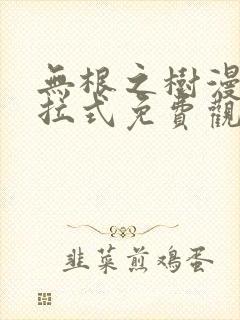 無根之樹漫
拉式免費觀
韭菜煎鸡蛋